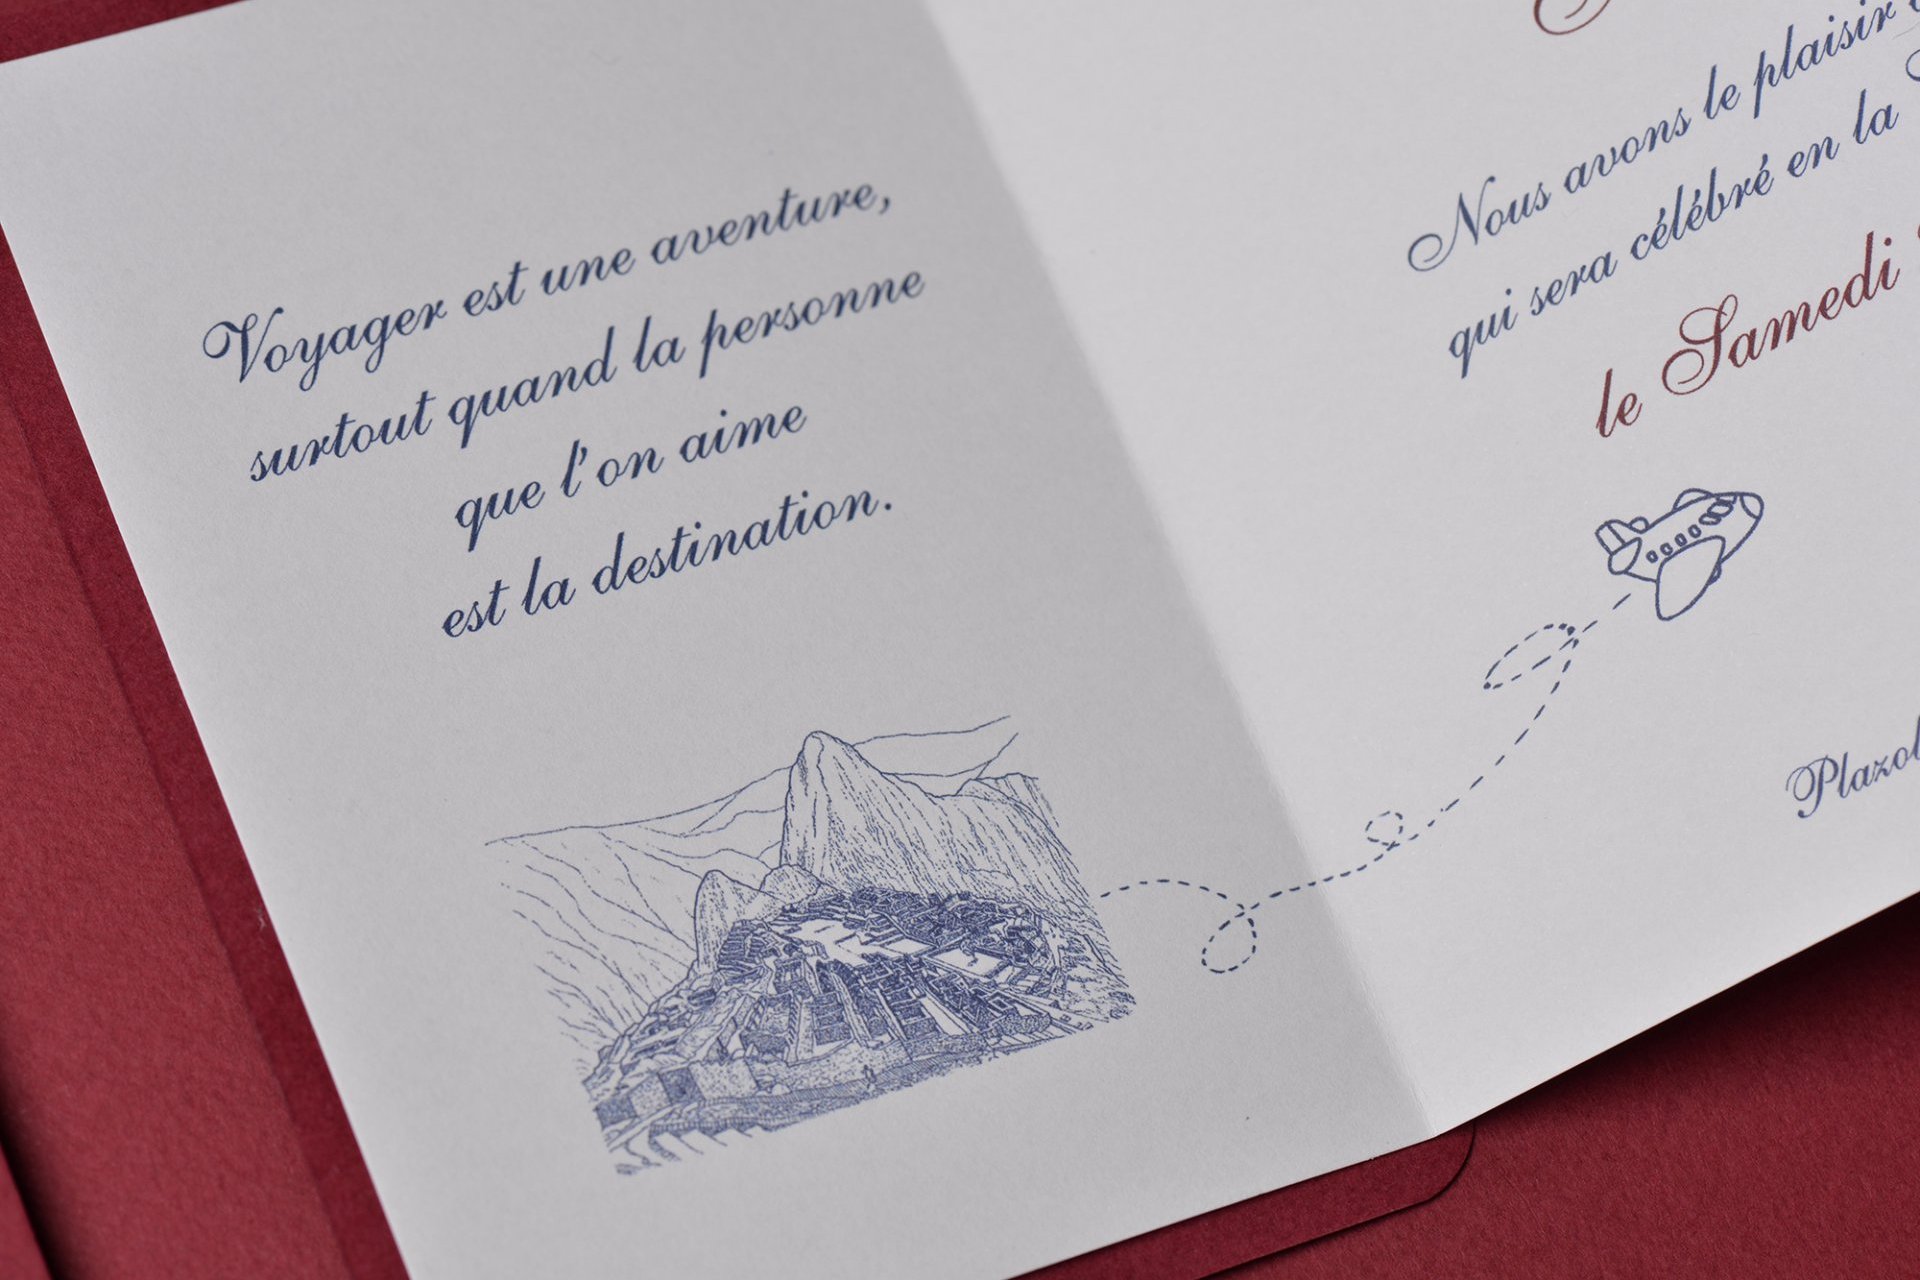 Voyager est une aventure,
surtout quand la personne
que l'on aime
est la destination.
Nous avons le plaisir
qui sera célébré en la
le Samedi